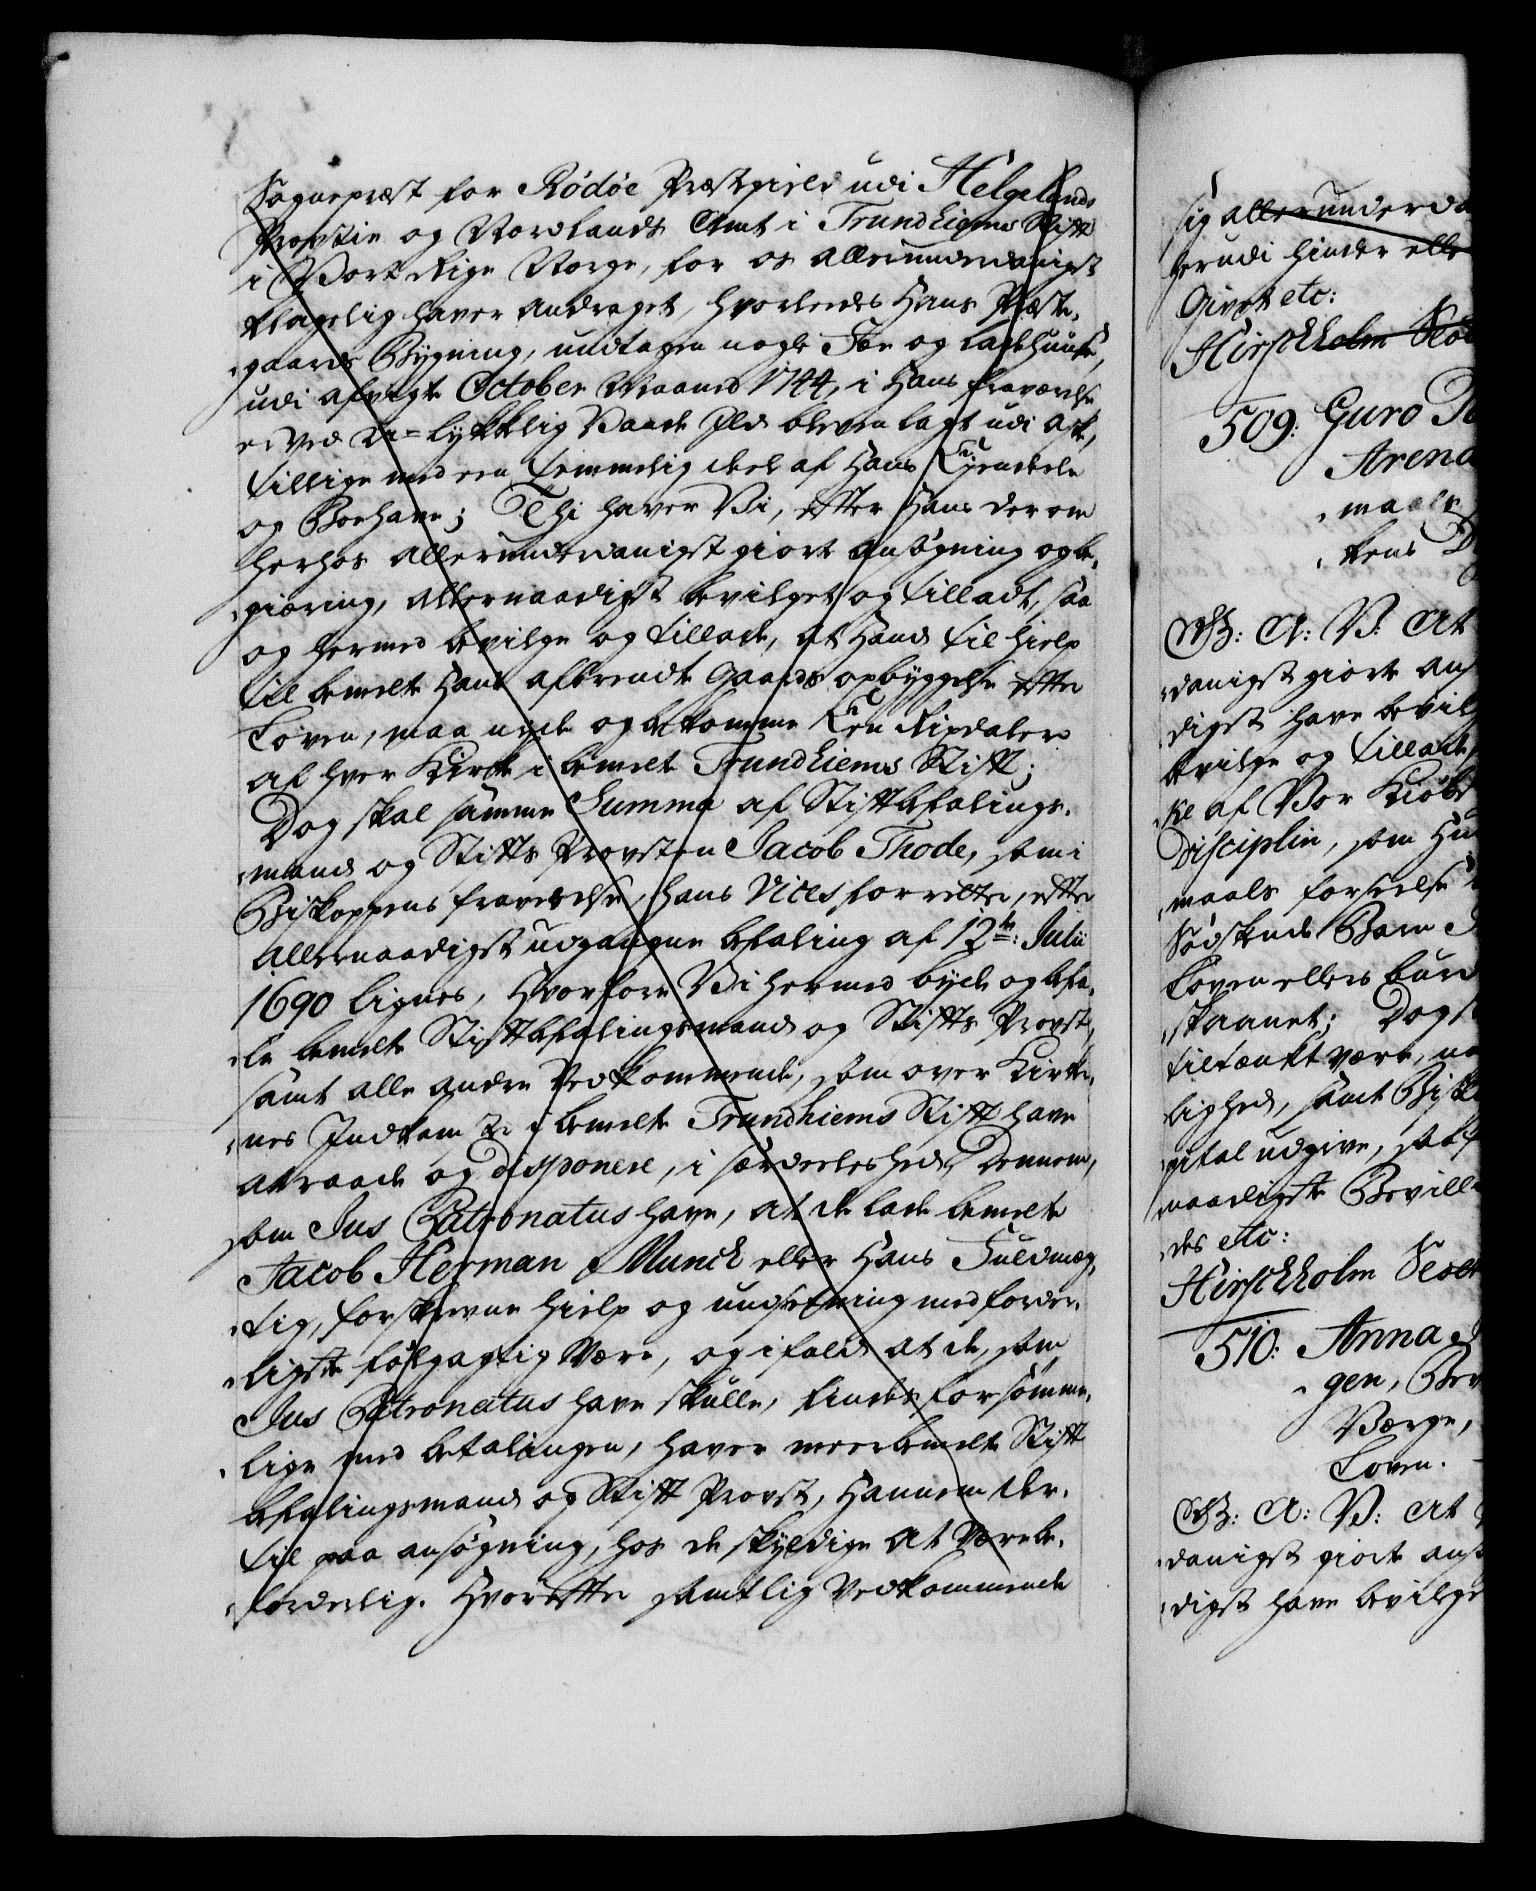 Sognepræst for Rödöe Præstegield udi Helgelands
Provstie og Nordlands Amt i Trundhiems Stift
i Vort Rige Norge, for os allerunderdanigst
klagelig haver andraget, hvorledes Hans Præste-
gaards Bygning, undtagen nogle Söe og ladehuuse,
udi afvigte October Maaned 1744, i Hans fraværelse
er ved U-lykkelig Vaade Ild bleven lagt udi Aske,
tillige med een temmelig deel af Hans Eyendeele
og Boehave; Thi haver Vi, efter Hans derom
herhos allerunderdanigst giorte ansögning og be-
giæring, allernaadigst bevilget og tilladt, saa
og hermed bevilge og tillade, at Hand til hielp
til bemelte Hans afbrendte Gaards opbyggelse efter
Loven, maa nyde og bekomme Een Rixdaler
af hver Kirke i bemelte Trundhiems Stift;
Dog skal samme Summa af Stiftbefalings-
mand og Stifts Provsten Jacob Thode, som i
Biskoppens fraværelse, hans Vices forretter, efter
allernaadigst udgangne befaling af 12te: Julii
1690 lignes, Hvorfore Vi hermed byde og befa-
le bemelte Stiftbefalingsmand og Stifts Provst,
samt alle andre Vedkommende, som over Kirker-
nes Indkomster i bemelte Trundhiems Stift have
at raade og disponere, i særdeleshed Dennem,
som Jus Patronatus have, at de lade bemelte
Jacob Herman Munch eller Hans Fuldmæg-
tig, forskrevne hielp og undsætning med forder-
ligste fölgagtig være, og ifald at de, som
Jus Patronatus have skulle, findes forsömme-
lige med betalingen, haver meerbemelte Stift
befalingsmand og Stift Provst, Hannem der-
til paa ansögning, hos de skyldige at være be-
forderlig. Hvorefter samtlig Vedkommende
sig allerunderda
herudi hinder elle
Givet etc:
Hirschholm Slot
509: Guro
Arend
maals
tens
G: A: V: At
danigst giorte ans
digst have bevilg
bevilge og tillade,
ke af Vor Kiöb
Disciplin, som Hu
maals forseelse
Södskende Barn
Loven ellers burd
skaanet; Dog s
tiltænkt være, na
lighed, samt Bisk
pital udgive, saa f
naadigste Bevill
des etc:
Hirschholm Slot
510: Anna
gen, Bev
Værge,
Loven.
G: A: V: At
danigst giorte ans
digst have bevilge